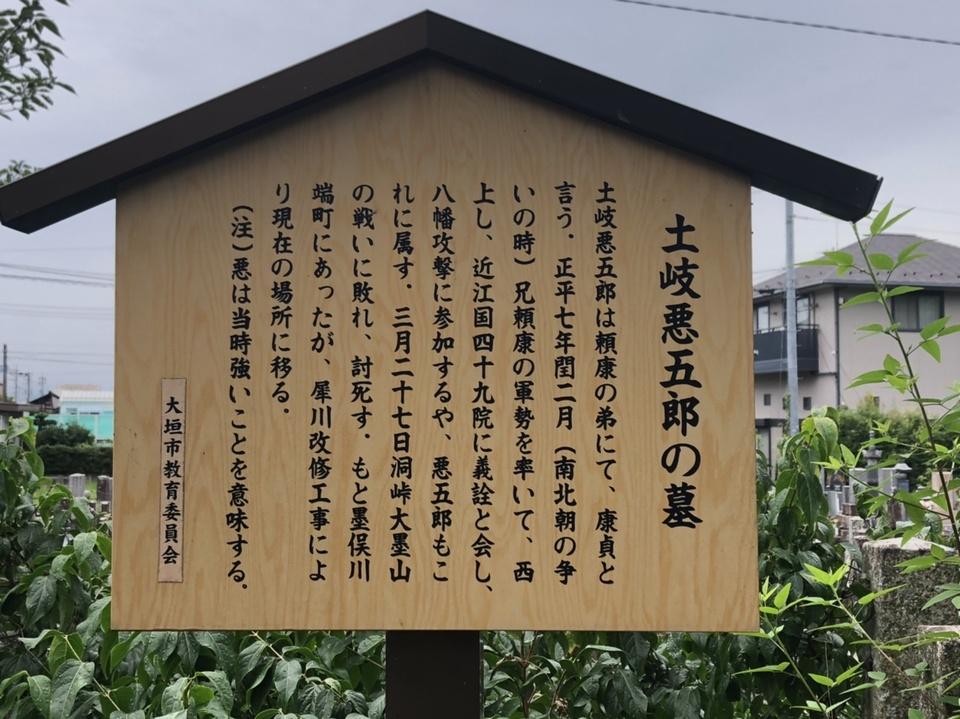 土岐悪五郎の墓
土岐悪五郎は頼康の弟にて、康貞と
言う．正平七年閏二月（南北朝の争
いの時）兄頼康の軍勢を率いて、西
上し、近江国四十九院に義詮と会し、
八幡攻撃に参加するや、悪五郎もこ
れに属す．三月二十七日洞峠大墨山
の戦いに敗れ、討死す．もと墨俣川
端町にあったが、犀川改修工事によ
り現在の場所に移る．
（注）悪は当時強いことを意味する．
大垣市教育委員会